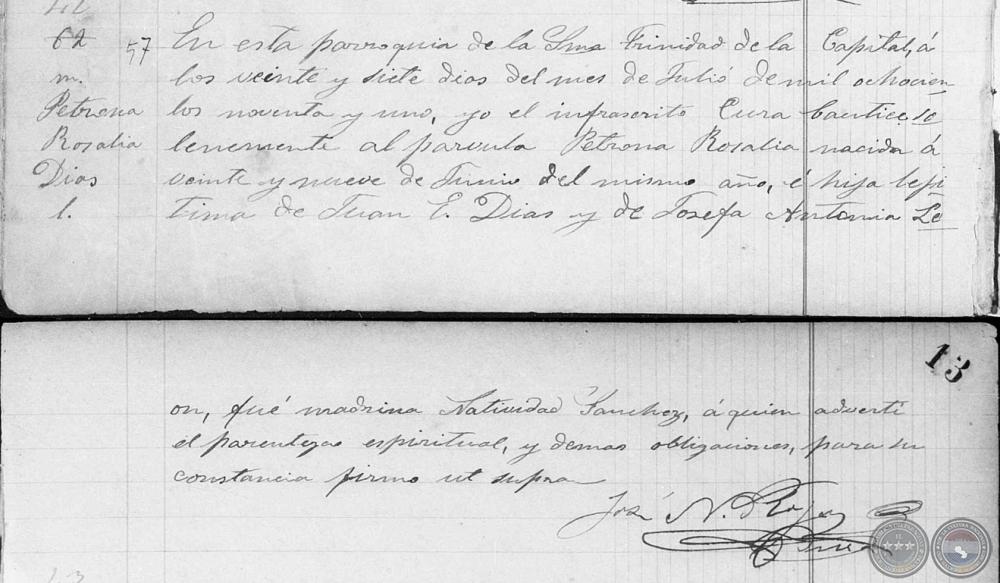 62
m.
Petrona
Rosalia
Dias
l.
57 En esta parroquia de la Sma Trinidad de la Capital, á
los veinte y siete dias del mes de Julió de mil ochocien
tos noventa y uno, yo el infrascrito Cura bautice so
lenemente al parvula Petrona Rosalia nacida á
veinte y nueve de Junio del mismo año, é hija leji
tima de Juan E. Dias y de Josefa Antonia Le
13
on, fué madrina Natividad Sanchez, á quien adverti
el parentezco espiritual, y demas obligaciones, para su
constancia firmo ut supra
José N. Rojas